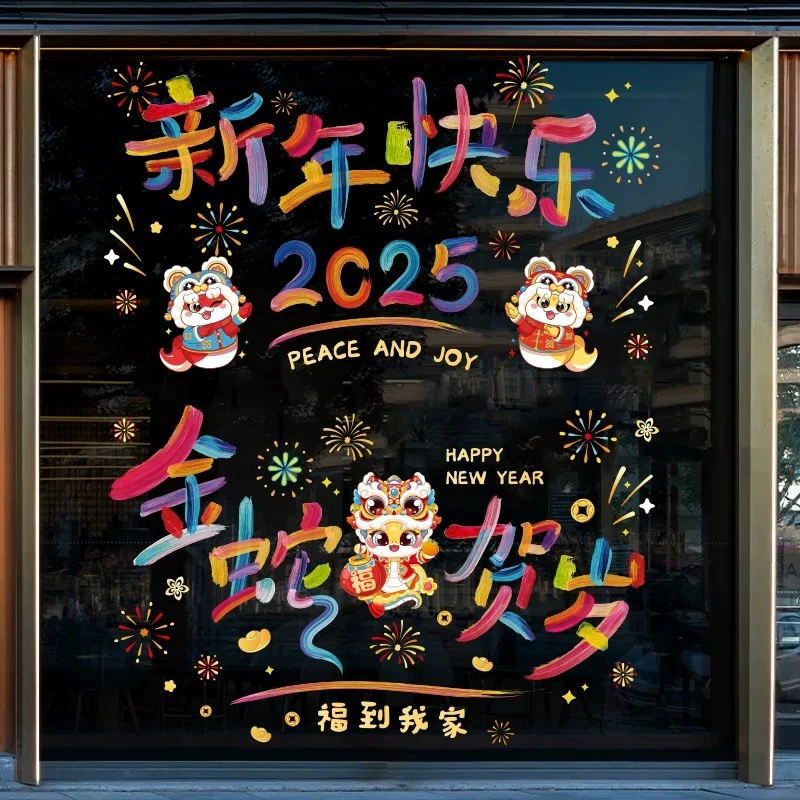 新年快乐
2025
PEACE AND JOY
HAPPY
NEW YEAR
金蛇贺岁
福
福到我家